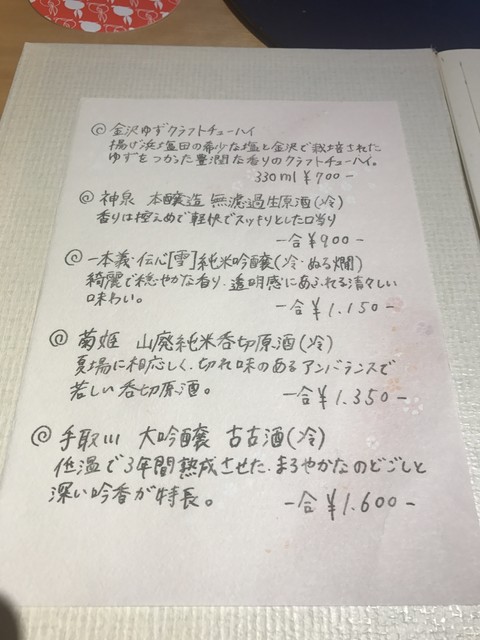 ◎ 金沢ゆずクラフトチューハイ
揚げ浜塩田の希少な塩と金沢で栽培された
ゆずをつかった豊潤な香りのクラフトチューハイ。
330ml ¥700-
◎ 神泉 本醸造 無濾過生原酒(冷)
香りは控えめで軽快でスッキリとした口当り
一合 ¥900-
◎ 一本義・伝心[雪]純米吟醸(冷・ぬる燗)
綺麗で穏やかな香り・透明感にあふれる清々しい
味わい。
一合 ¥1.150-
◎ 菊姫 山廃純米呑切原酒(冷)
夏場に相応しく、切れ味のあるアンバランスで
若しい呑切原酒。
一合 ¥1.350-
◎ 手取川 大吟醸 古古酒(冷)
低温で3年間熟成させた、まろやかなのどごしと
深い吟香が特長。
一合 ¥1.600-